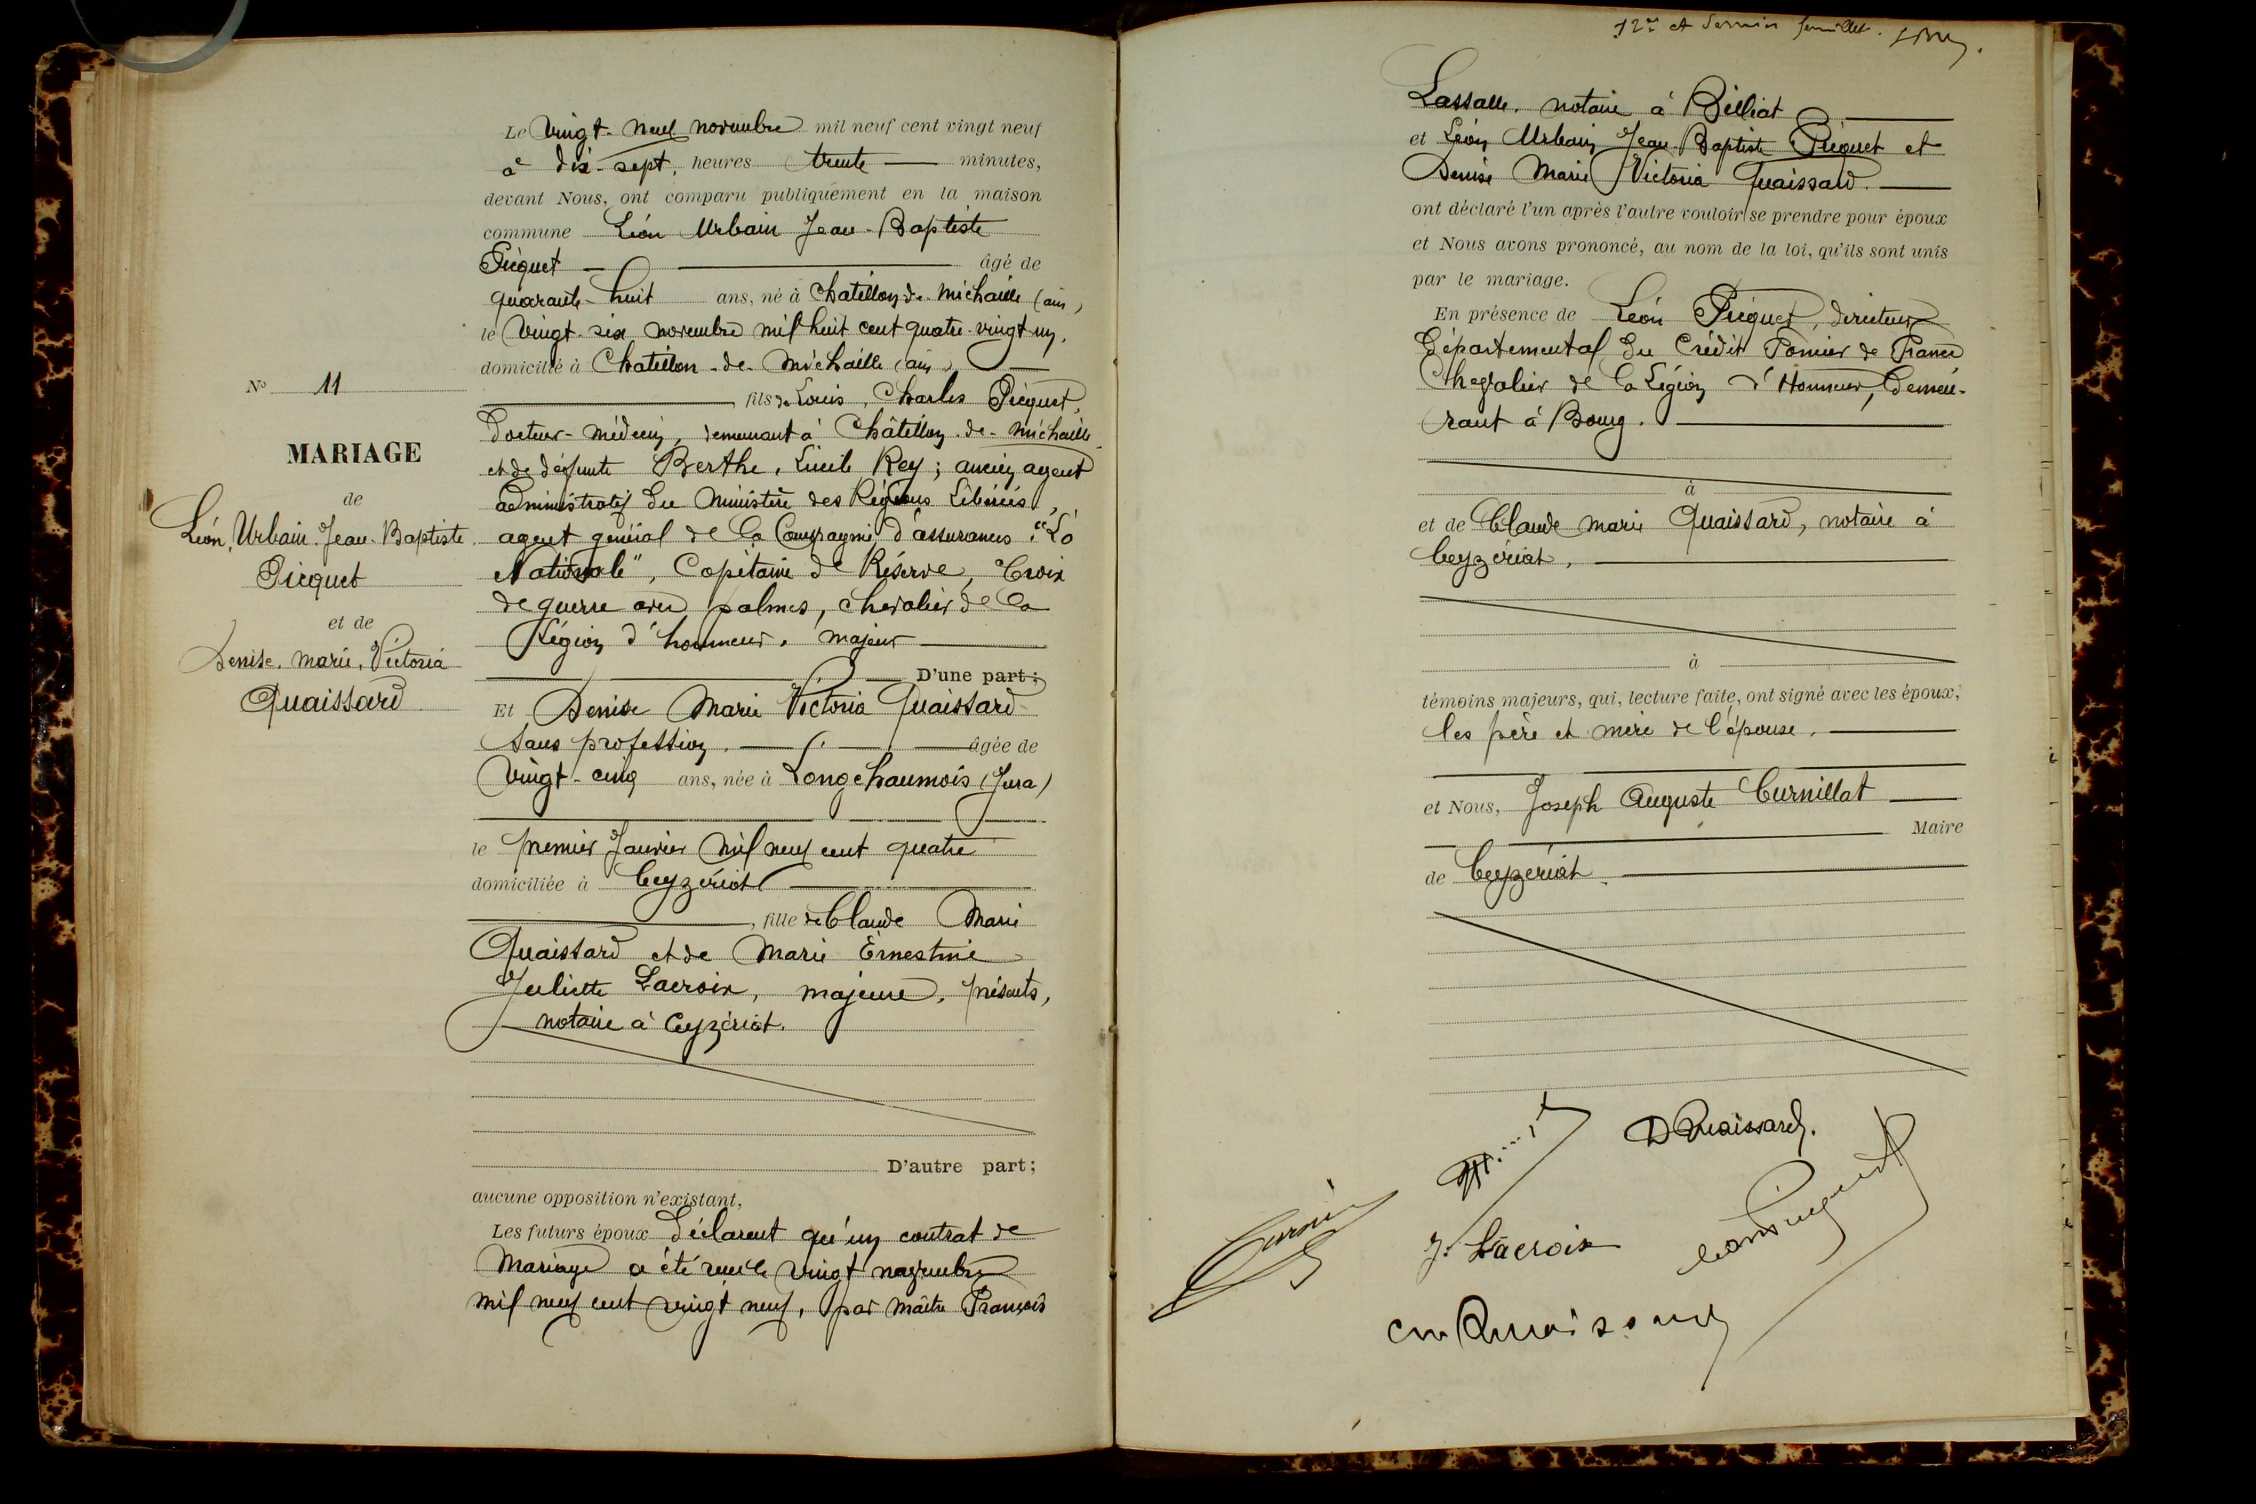 Nº 11
MARIAGE
de
Léon, Urbain, Jean-Baptiste
Picquet
et de
Denise, Marie, Victoria
Quaissard
Le Vingt-neuf novembre mil neuf cent vingt neuf
à dix-sept heures trente minutes,
devant Nous, ont comparu publiquement en la maison
commune Léon Urbain Jean-Baptiste
Picquet âgé de
quarante-huit ans, né à Chatillon-de-Michaille (ain)
le Vingt-six novembre mil huit cent quatre-vingt un,
domicilié à Chatillon-de-Michaille (ain)
fils de Louis, Charles Picquet,
Docteur-médecin, demeurant à Châtillon-de-Michaille
et de défunte Berthe, Lucile Rey; ancien agent
administratif du Ministère des Régions Libérées,
agent général de la Compagnie d'assurances "La
Nationale", Capitaine de Réserve, Croix
de guerre avec palmes, chevalier de la
Légion d'honneur, majeur
D'une part;
Et Denise Marie Victoria Quaissard
Sans profession, âgée de
Vingt-cinq ans, née à Longchaumois (Jura)
le premier Janvier mil neuf cent quatre
domiciliée à Ceyzériat
, fille de Claude Marie
Quaissard et de Marie Ernestine
Juliette Lacroix, majeure, présents,
notaire à Ceyzériat.
D'autre part;
aucune opposition n'existant,
Les futurs époux déclarent qu'un contrat de
Mariage a été reçu le vingt novembre
mil neuf cent vingt neuf, par maître François
12e et dernier feuillet.
Lassalle, notaire à Billiat
et Léon Urbain Jean-Baptiste Picquet et
Denise Marie Victoria Quaissard.
ont déclaré l'un après l'autre vouloir se prendre pour époux
et Nous avons prononcé, au nom de la loi, qu'ils sont unis
par le mariage.
En présence de Léon Picquet, directeur
Départemental du Crédit Foncier de France
Chevalier de la Légion d'Honneur, demeu-
rant à Bourg.
à
et de Claude Marie Quaissard, notaire à
Ceyzériat.
à
témoins majeurs, qui, lecture faite, ont signé avec les époux,
les père et mère de l'épouse.
et Nous, Joseph Auguste Curnillat
Maire
de Ceyzériat.
D Quaissard.
J. Lacroix
Léon Picquet
cm Quaissard